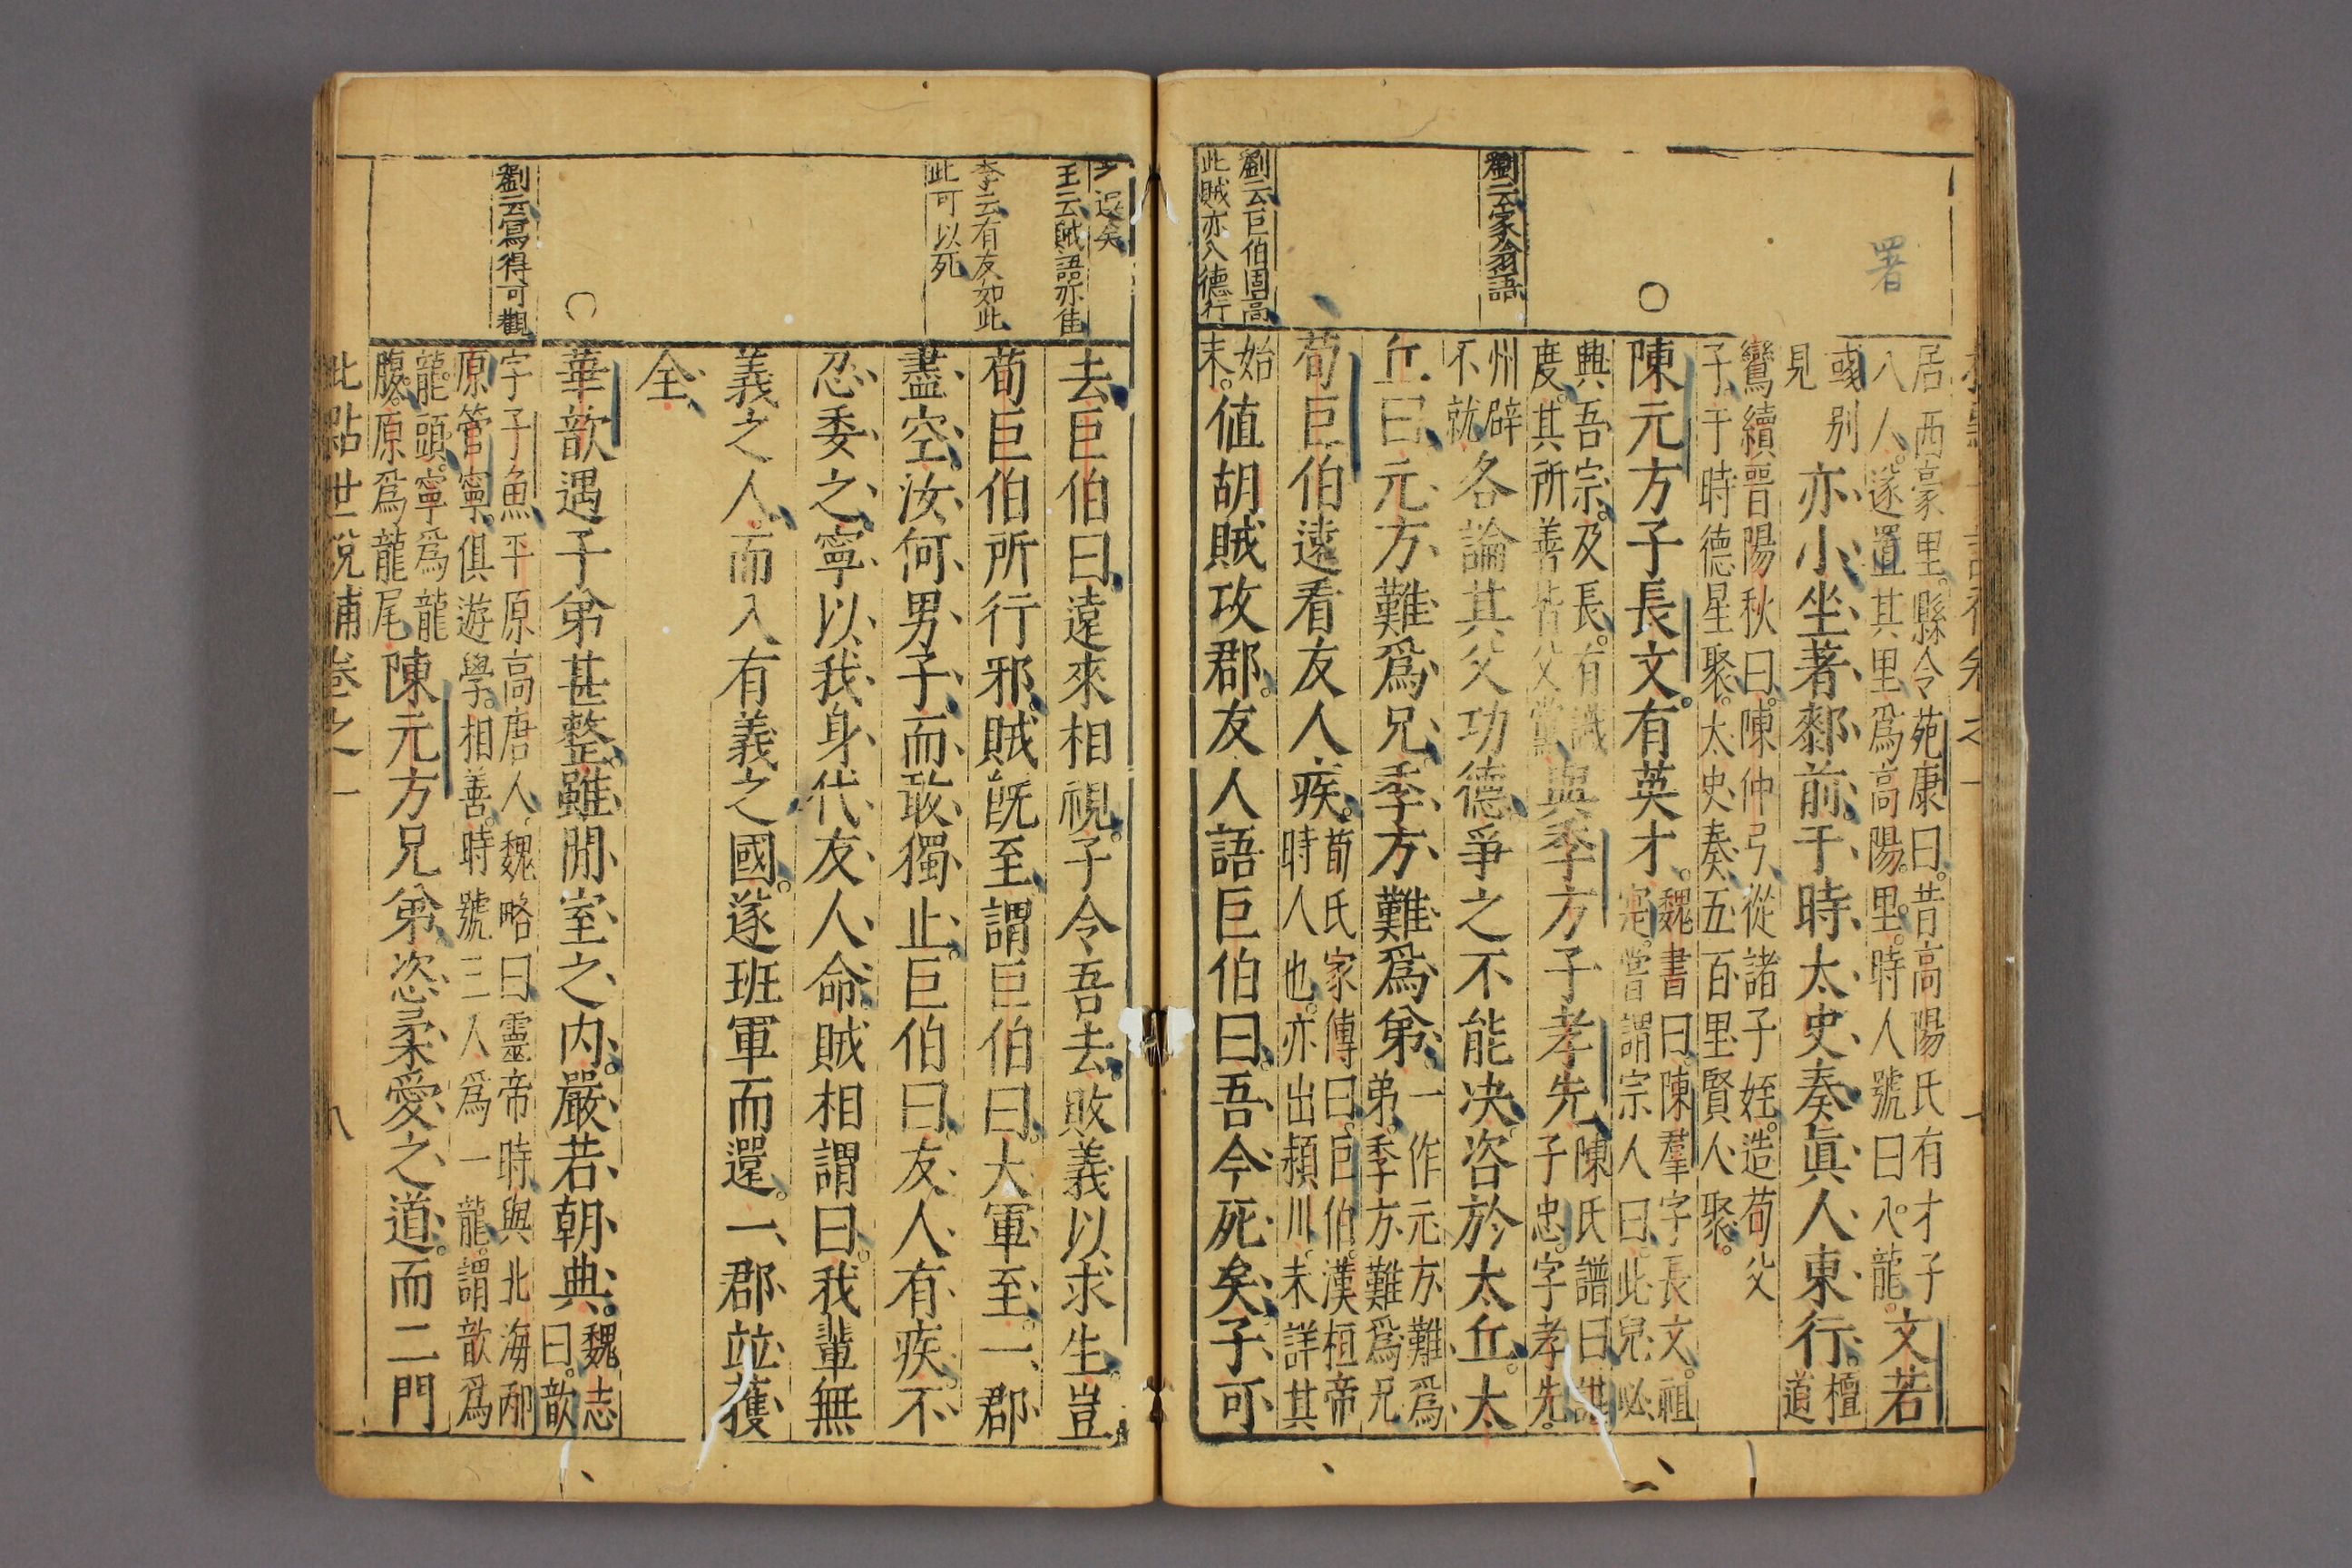 署
劉云家翁語
劉云巨伯固高
此賊亦入德行
居西豪里。縣令苑康曰。昔高陽氏有才子
八人。遂置其里爲高陽里。時人號曰八龍。
文若
彧別
見
亦小坐著䣛前。于時太史奏眞人東行。
檀
道
鸞續晉陽秋曰。陳仲弓從諸子姪。造荀父
子。于時德星聚。太史奏五百里賢人聚。
陳元方子長文。有英才。
魏書曰。陳羣字長文。祖
寔。嘗謂宗人曰。此兒必
興吾宗。及長。有識
度。其所善皆父黨
與季方子孝先
陳氏譜曰諶
子忠。字孝先。
州辟
不就
各論其父功德。爭之不能决。咨於太丘。太
丘曰。元方難爲兄。季方難爲弟。
一作元方難爲
弟。季方難爲兄
荀巨伯遠看友人疾。
荀氏家傳曰。巨伯。漢桓帝
時人也。亦出潁川。未詳其
始
末。
值胡賊攻郡。友人語巨伯曰。吾今死矣。子可
王云賊語亦佳
李云有友如此
此可以死
劉云寫得可觀
去。巨伯曰。遠來相視。子令吾去。敗義以求生。豈
荀巨伯所行邪。賊旣至。謂巨伯曰。大軍至。一郡
盡空。汝何男子。而敢獨止。巨伯曰。友人有疾。不
忍委之。寧以我身代友人命。賊相謂曰。我輩無
義之人。而入有義之國。遂班軍而還。一郡竝獲
全
華歆遇子弟甚整。雖閒室之內。嚴若朝典。
魏志
曰。歆
字子魚。平原高唐人。魏略曰。靈帝時。與北海邴
原。管寧。俱遊學。相善。時號三人爲一龍。謂歆爲
龍頭。寧爲龍
腹。原爲龍尾
陳元方兄弟。恣柔愛之道。而二門
批點世說補卷之一
八